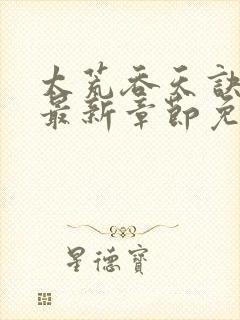 大荒吞天诀
最新章節免
星德寶